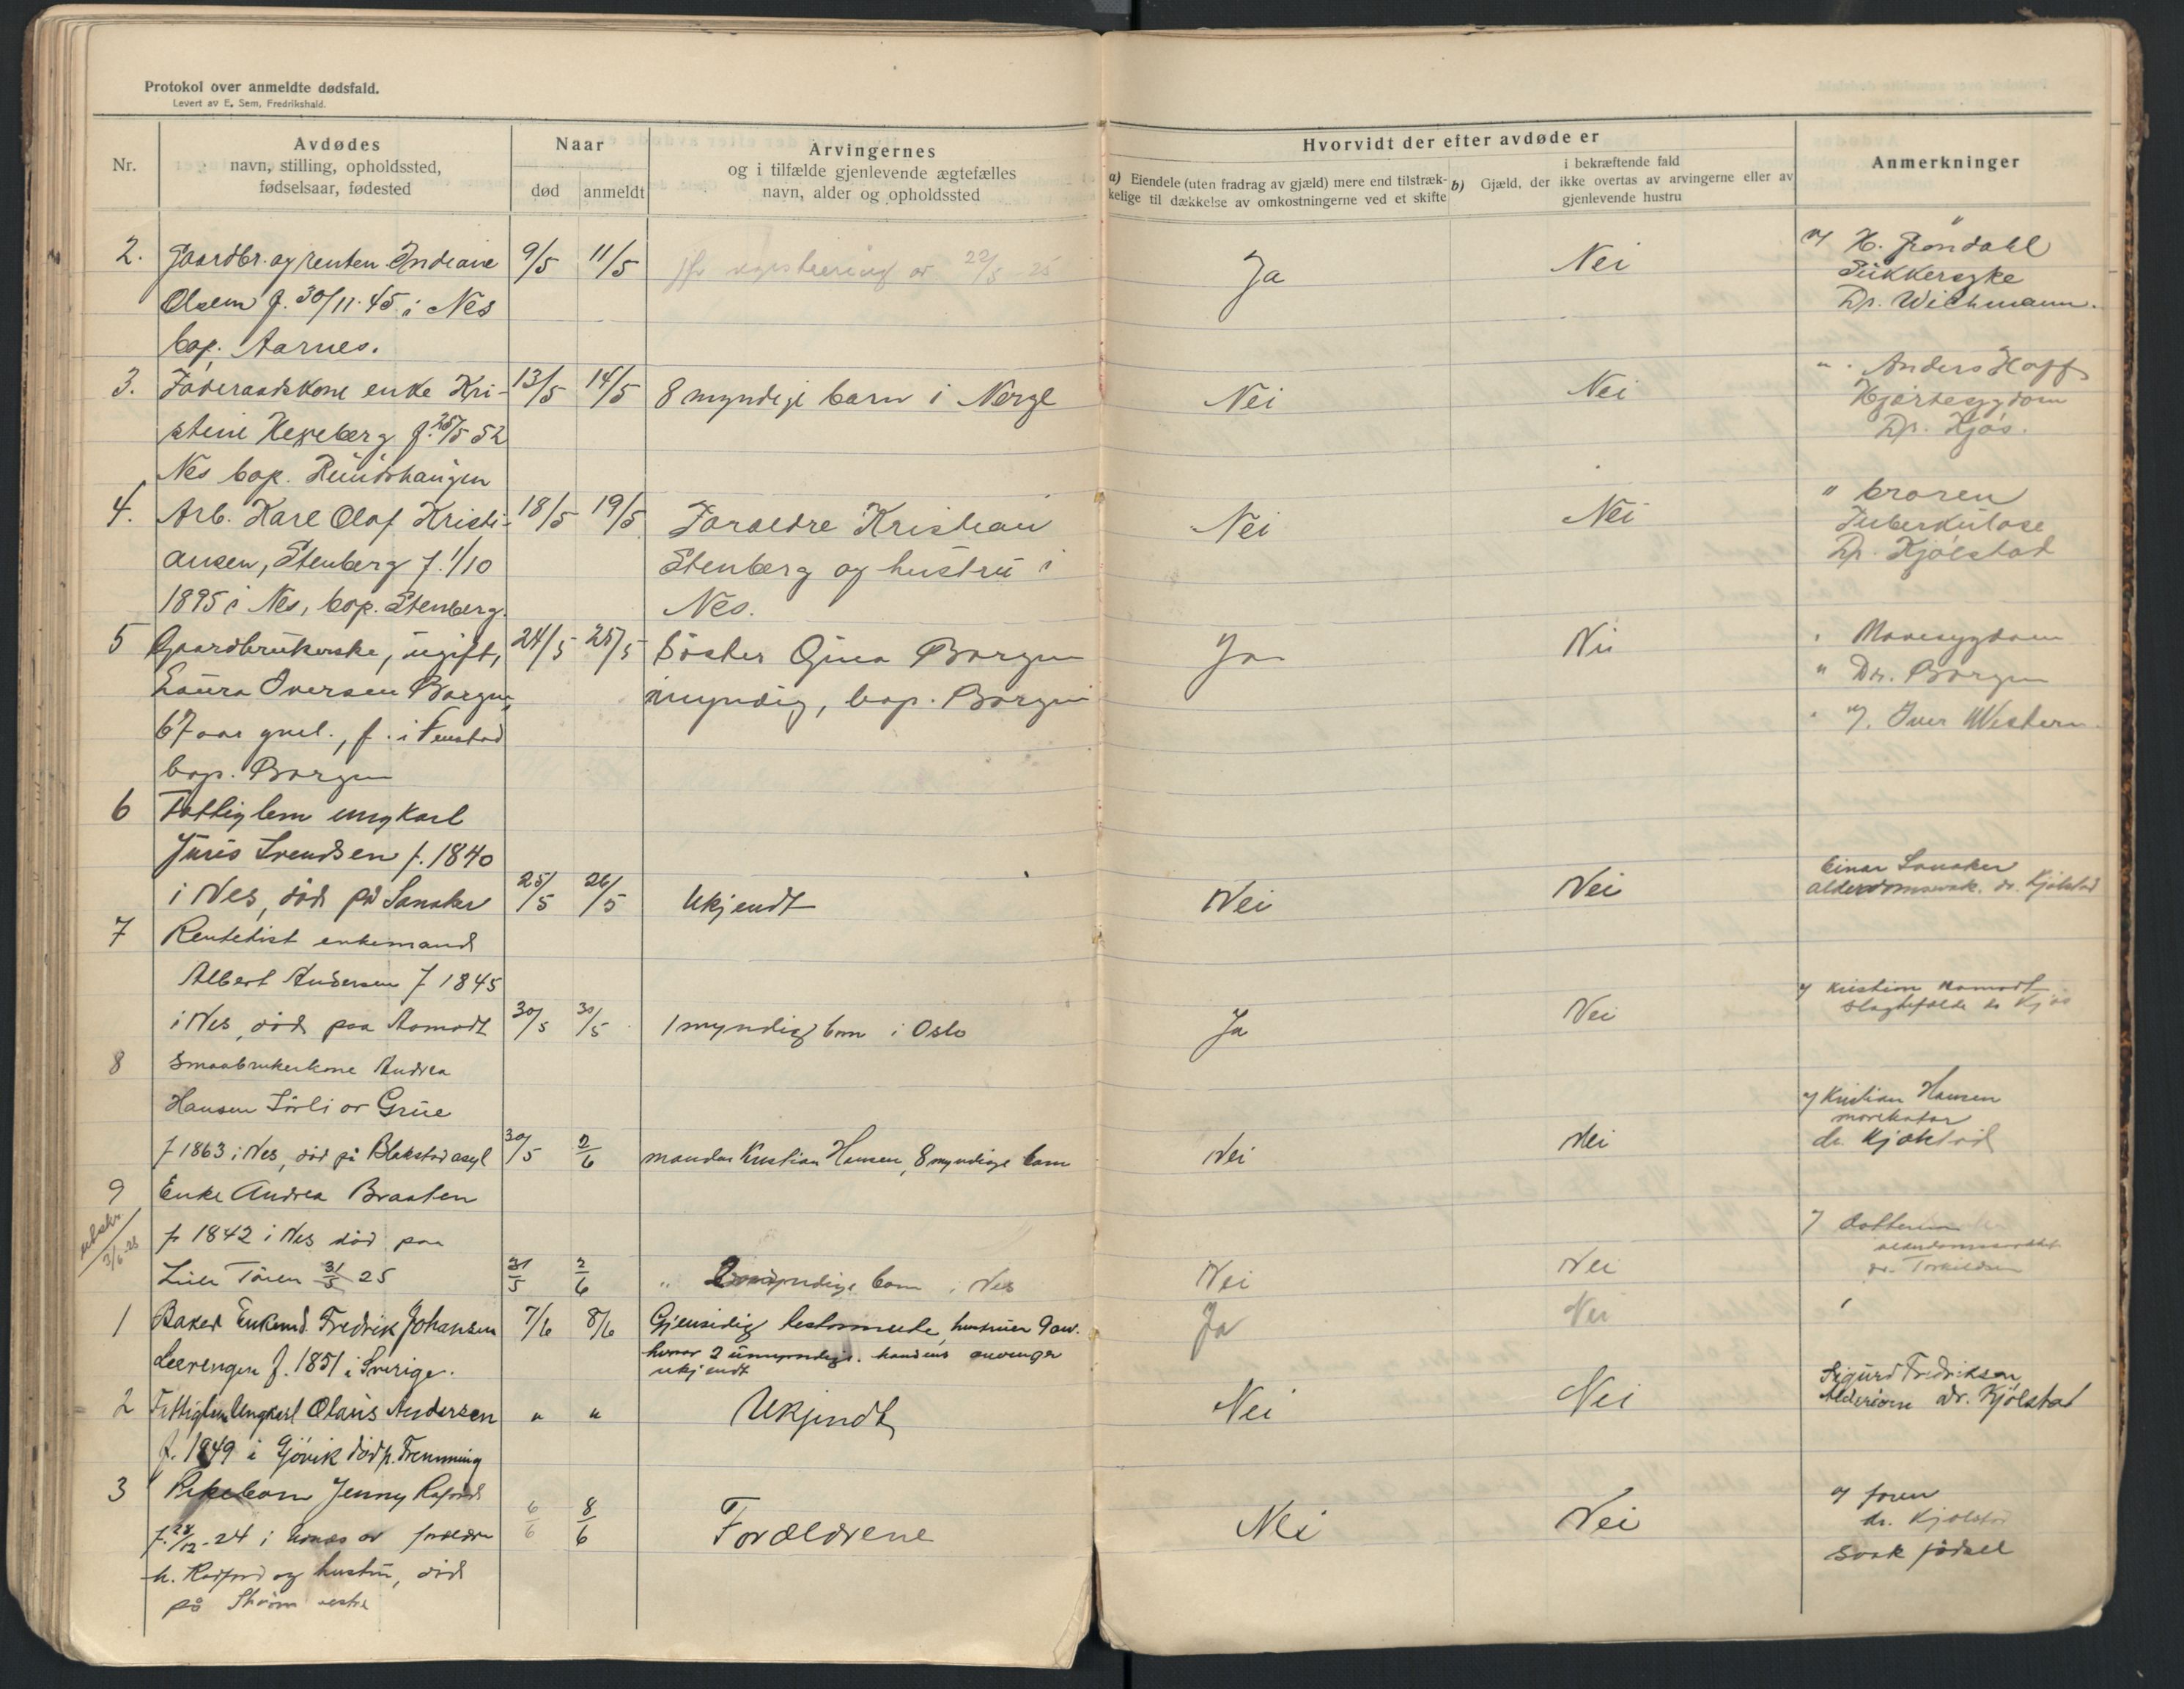 Protokol over anmeldte dødsfald.
Levert av E. Sem, Fredrikshald.
Nr.
Avdødes
navn, stilling, opholdssted,
fødselsaar, fødested
Naar
død
anmeldt
Arvingernes
og i tilfælde gjenlevende ægtefælles
navn, alder og opholdssted
Hvorvidt der efter avdøde er
a) Eiendele (uten fradrag av gjæld) mere end tilstræk-
kelige til dækkelse av omkostningerne ved et skifte
i bekræftende fald
b) Gjæld, der ikke overtas av arvingerne eller av
gjenlevende hustru
Anmerkninger
2. Gaardbr. og renten. Indiane 9/5 11/5 jfr registrering av 22/5 25 Ja Nei
Olsen f. 30/11 45 i Nes
bop. Aarnes.
H. Grøndahl
Sukkersyke
Dr. Wichmann.
3. Føderaadskone enke Kri- 13/5 14/5 8 myndige barn i Norge Nei Nei
stine Hexeberg f. 25/5 52
Nes bop. Rundshaugen
" Anders Hoff
Hjertesygdom
Dr. Kjos.
4. Arb. Karl Olaf Kristi- 18/5 19/5 Foraeldre Kristian Nei Nei
ansen, Stenberg f. 1/10 Stenberg og hustru i
1895 i Nes, bop. Stenberg. Nes.
" broren
Tuberkulose
Dr. Kjølstad
5 Gaardbrukerske, ugift, 24/5 25/5 Søster Gina Borgen Ja Nei
Laura Iversen Borgen, myndig, bop. Borgen
67 aar gml., f. i Fenstad
bop. Borgen
" Mavesygdom
" Dr. Borgen
" Iver Western
6 Fattiglem ungkarl
Juris Svendsen f. 1840
i Nes, død på Sanaker 25/5 26/5 Ukjendt Nei Nei
Einar Sanaker
alderdomssvak. dr. Kjølstad
7 Rentetist enkemand
Albert Andersen f 1845
i Nes, død paa Aamodt 30/5 30/5 1 myndig barn i Oslo Ja Nei
Kristian Aamodt
slagtilfælde dr Kjos
8 Smaabrukerkone Andrea
Hansen Sørli av Grue
f 1863 i Nes, død på Blakstad asyl 30/5 2/6 mandas Kristian Hansen, 8 myndige barn Nei Nei
Kristian Hansen
dr. Kjølstad
9 Enke Andrea Braaten
3/6-25
f 1842 i Nes død paa
Lille Tøren 31/5 25 31/5 2/6 " 2 myndige barn i Nes Nei Nei
Datteren
dr. Torkildsen
1 Baker Enkemd. Fredrik Johansen 7/6 8/6 Gjensidig testamente, hustruen 9 arv. Ja Nei
Leerengen f. 1851 i Sverige. hvorav 2 umyndige. mandens arvinger
ukjendt
2 Fattiglem Ungkarl Olaus Andersen " " Ukjendt Nei Nei
f. 1849 i Gjøvik død p. Fremming
Sigurd Fredriksen
Alderdom dr. Kjølstad
3 Pikebarn Jenny
f. 28/12-24 i av foreldre 6/6 8/6 Forældrene Nei Nei
og hustru, død
på Strøm vestre
faren
dr. Kjølstad
svak fødsel